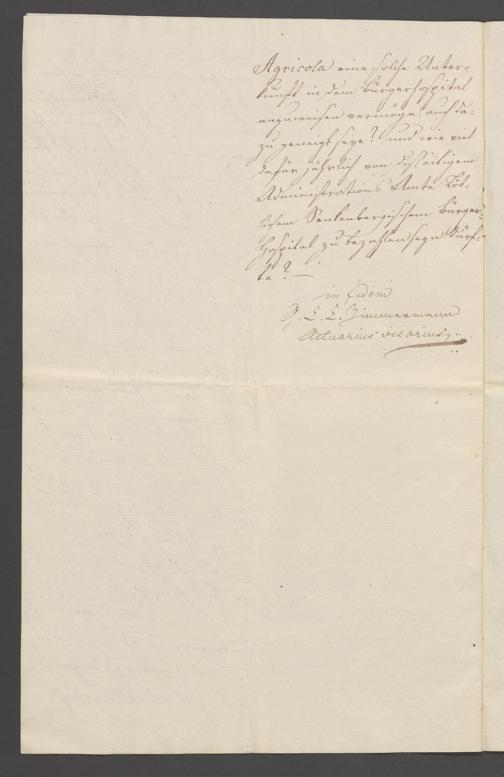 Agricola eine solche Unter-
kunft in dem Bürgerhospital
anzuweisen vermöge? auch da-
zu geneigt seye? und wie viel
dafür jährlich von disseitigem
Administrations Amte Löb-
lichem Senkenbergischem Bürger-
Hospital zu bezahlen seyn dürf-
te?
in fidem
Zimmermann
Actuarius vicarius